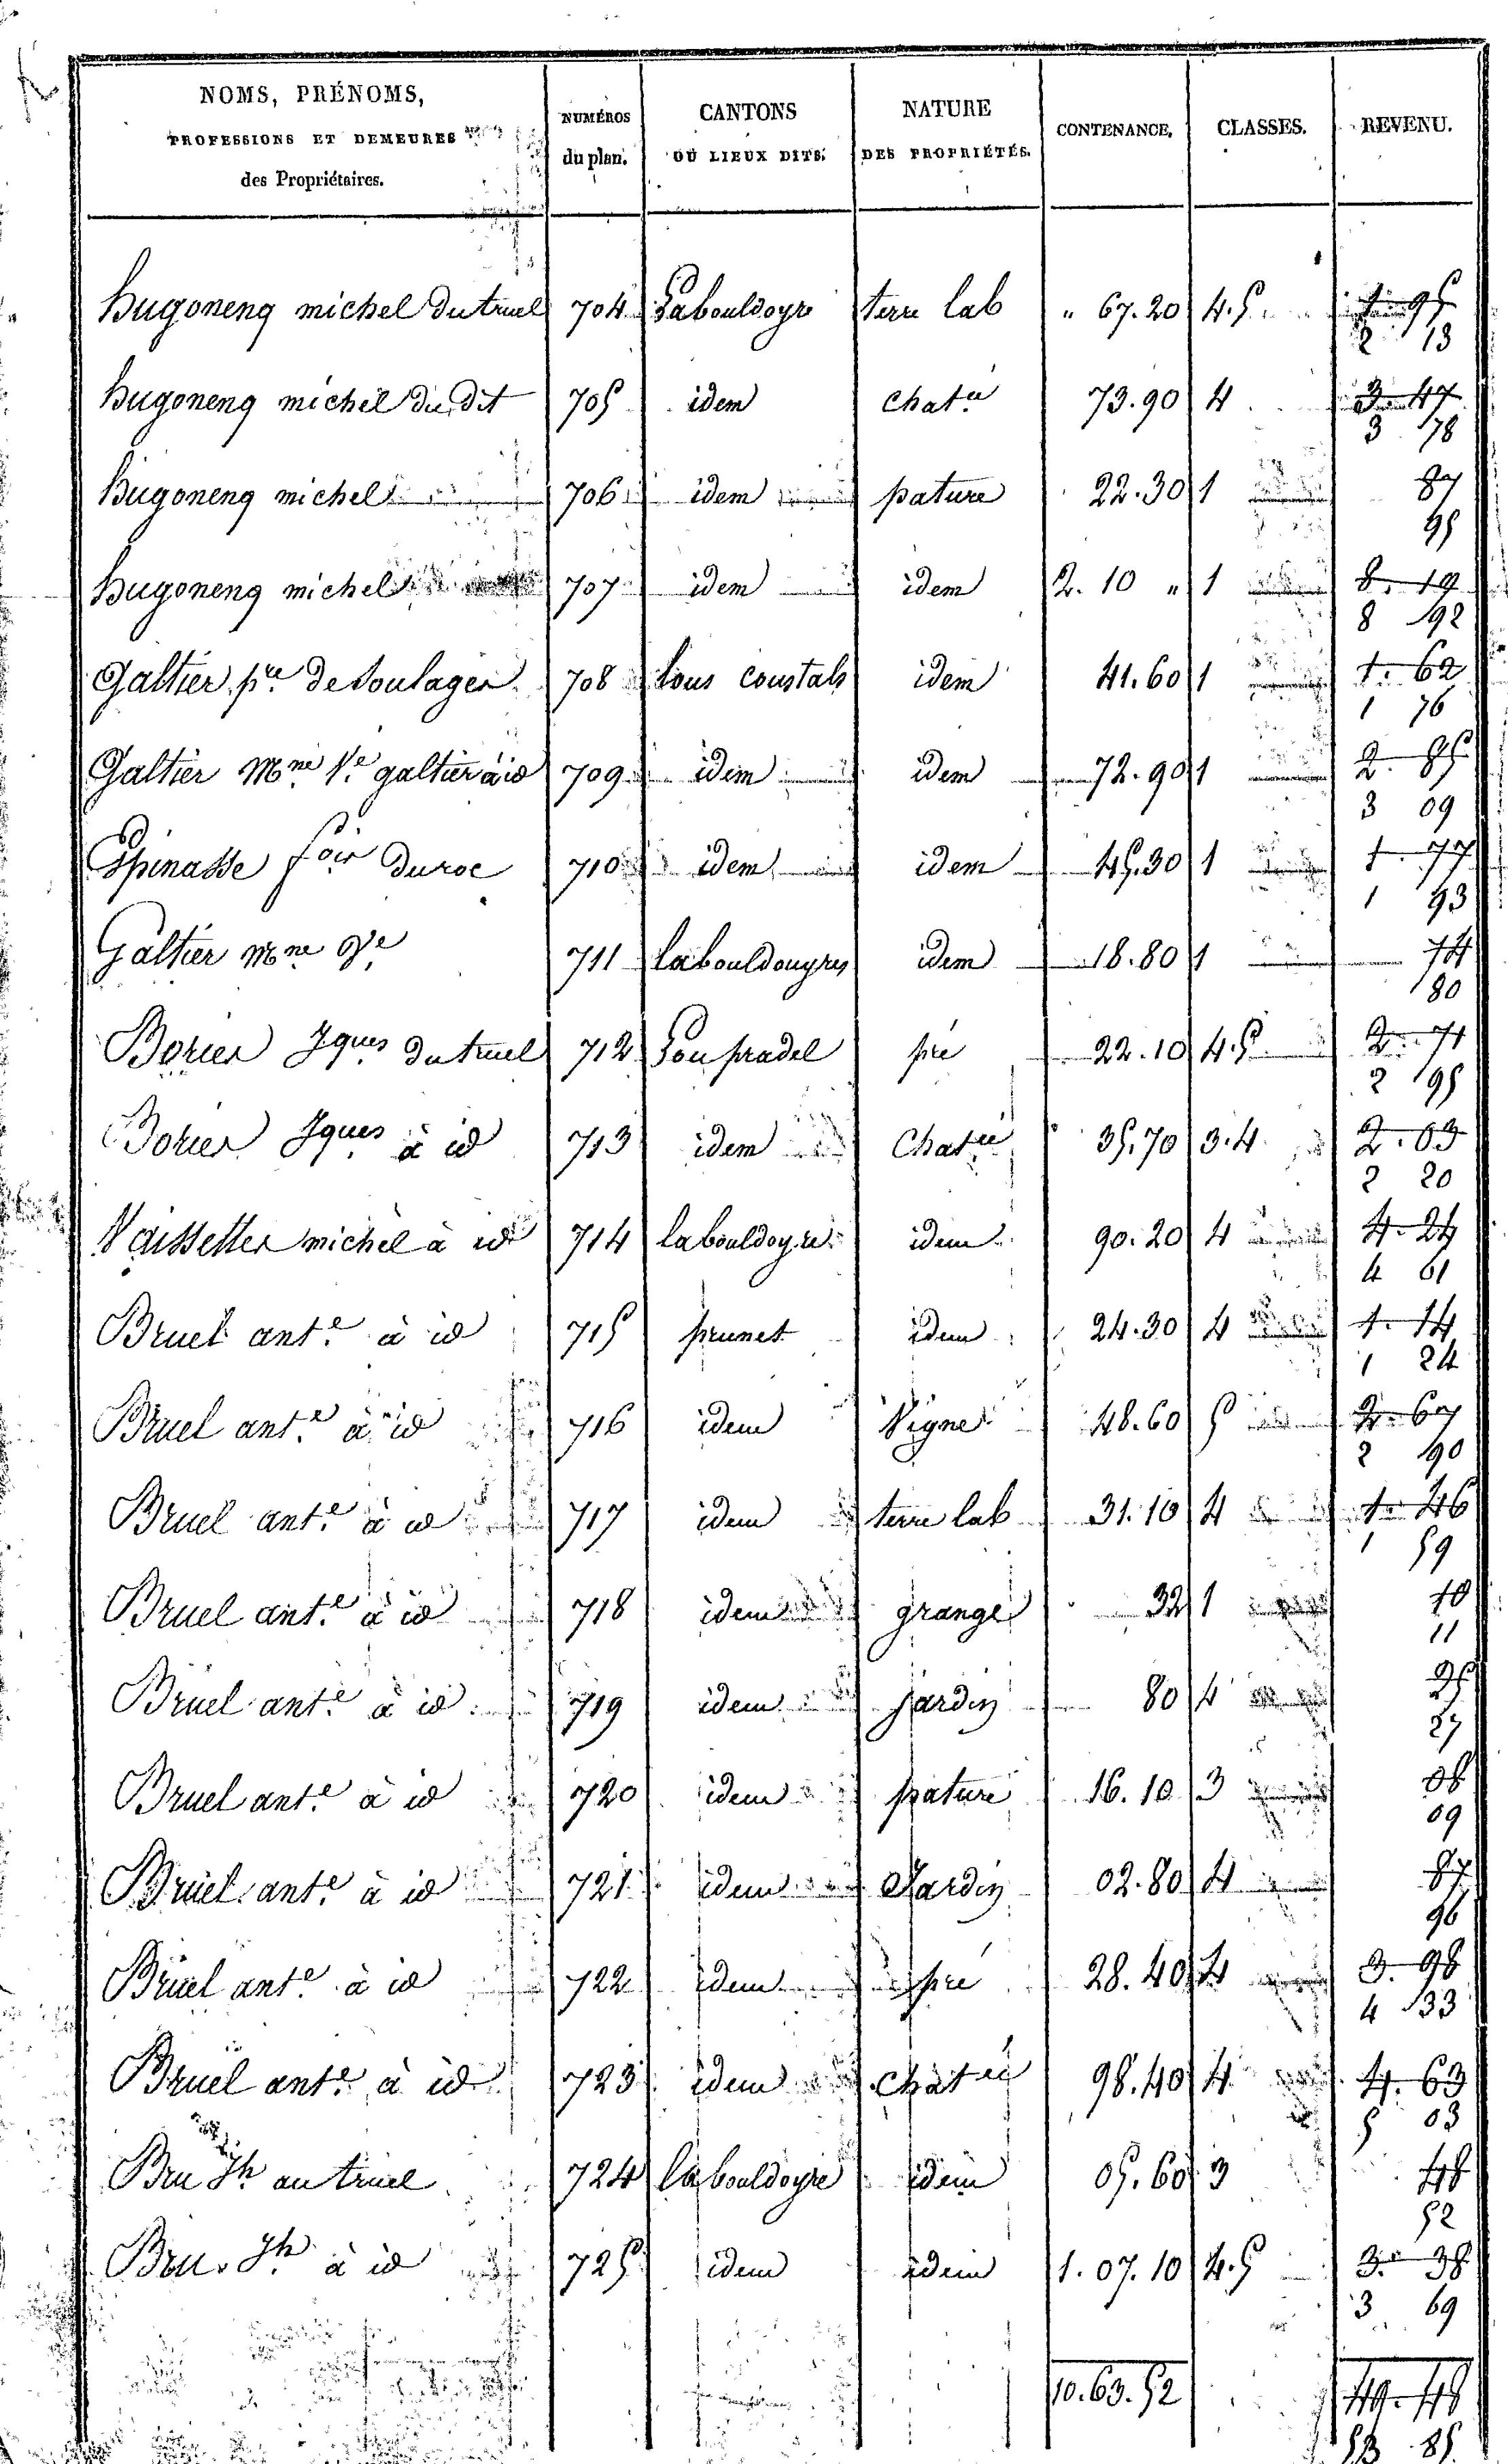 NOMS, PRÉNOMS,
PROFESSIONS ET DEMEURES
des Propriétaires.
NUMÉROS
du plan.
CANTONS
OU LIEUX DITS.
NATURE
DES PROPRIÉTÉS.
CONTENANCE.
CLASSES.
REVENU.
hugoneng michel Du truel 704 Labouldoyre terre lab " 67.20 4.5 1. 95
2 13
hugoneng michel du dit 705 idem chat.ie 73.90 4 3. 47
3 78
hugoneng michel 706 idem pature 22.30 1 87
95
hugoneng michel 707 idem idem 2. 10 " 1 8. 19
8 92
Galtier p.re de Soulages 708 lous coustals idem 41.60 1 1. 62
1 76
Galtier M.ne V.e galtier à id 709 idem idem 72.90 1 2. 85
3 09
Espinasse f.ois Duroc 710 idem idem 45.30 1 1. 77
1 93
Galtier M.ne V.e 711 labouldouyres idem 18.80 1 74
80
Borier Jques du truel 712 Lou pradel pré 22.10 4.5 2. 71
2 95
Borier Jques à id 713 idem Chat.ie 35.70 3.4 2. 03
2 20
Vaissettes michel à id 714 labouldoyre idem 90.20 4 4. 24
4 61
Bruel ant.e à id 715 prunet idem 24.30 4 1. 14
1 24
Bruel ant.e à id 716 idem Vigne 48.60 5 2. 67
2 90
Bruel ant.e à id 717 idem terre lab 31.10 4 1. 46
1 59
Bruel ant.e à id 718 idem grange 32 1 10
11
Bruel ant.e à id 719 idem jardin 80 4 25
27
Bruel ant.e à id 720 idem pature 16.10 3 08
09
Bruel ant.e à id 721 idem Jardin 02.80 4 87
96
Bruel ant.e à id 722 idem pré 28.40 4 3. 98
4 33
Bruel ant.e à id 723 idem chat.ie 98.40 4 4. 63
5 03
Bru Jh au truel 724 labouldoyre idem 05.60 3 48
52
Bru Jh à id 725 idem idem 1. 07. 10 4.5 3. 38
3 69
10.63.52 49. 48
53 85